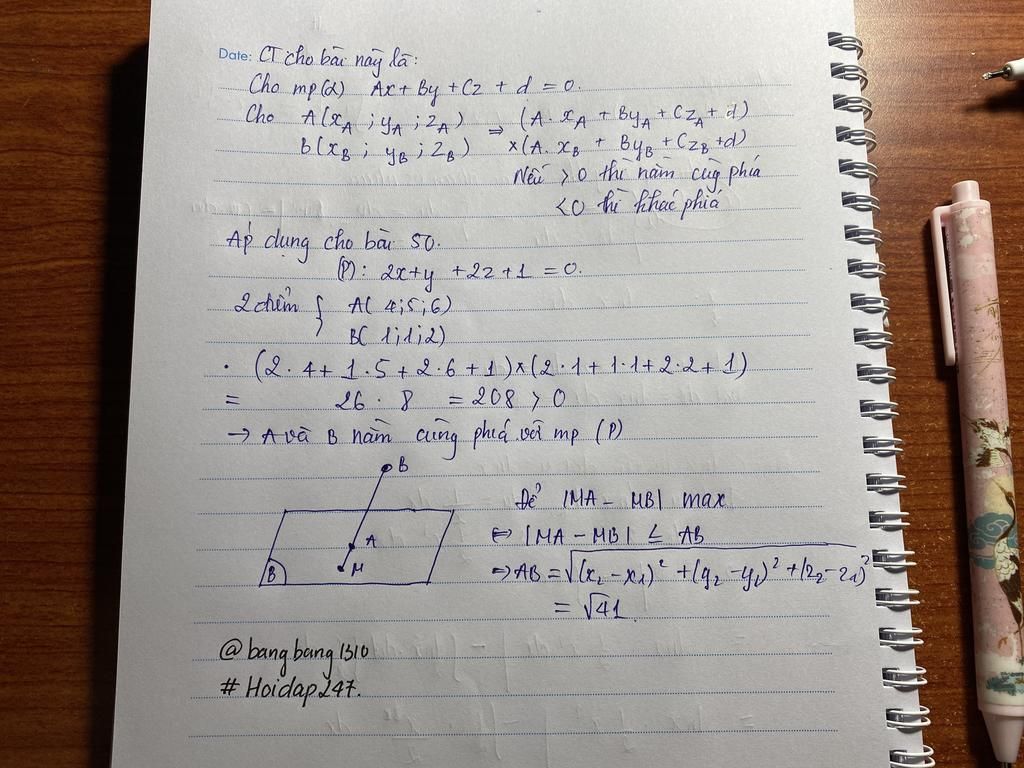 Date: CT cho bài này là:
Cho mp(α) Ax + By + Cz + d = 0.
Cho A(x_A ; y_A ; z_A) ⇒ (A. x_A + By_A + Cz_A + d)
B(x_B ; y_B ; z_B) x(A. x_B + By_B + Cz_B + d)
Nếu > 0 thì nằm cùng phía
< 0 thì khác phía
Áp dụng cho bài 50.
(P): 2x + y + 2z + 1 = 0.
2 điểm { A( 4;5;6)
B( 1;1;2)
• (2·4 + 1·5 + 2·6 + 1)x(2·1 + 1·1 + 2·2 + 1)
= 26 · 8 = 208 > 0
→ A và B nằm cùng phía với mp (P)
B
A
M
B
Để |MA - MB| max
⇔ |MA - MB| ≤ AB
⇒ AB = √(x₂ - x₁)² + (y₂ - y₁)² + (z₂ - z₁)²
= √41.
@bangbang1310
# Hoidap247.